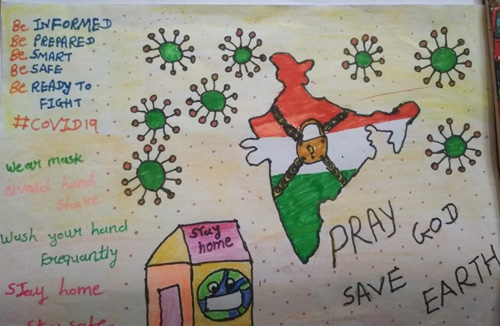 Be INFORMED
Be PREPARED
Be SMART
Be SAFE
Be READY TO
FIGHT
#COVID19
Wear mask
Avoid hand
Shake
Wash your hand
Frequantly
Stay home
Stay safe
Stay
home
PRAY GOD
SAVE EARTH